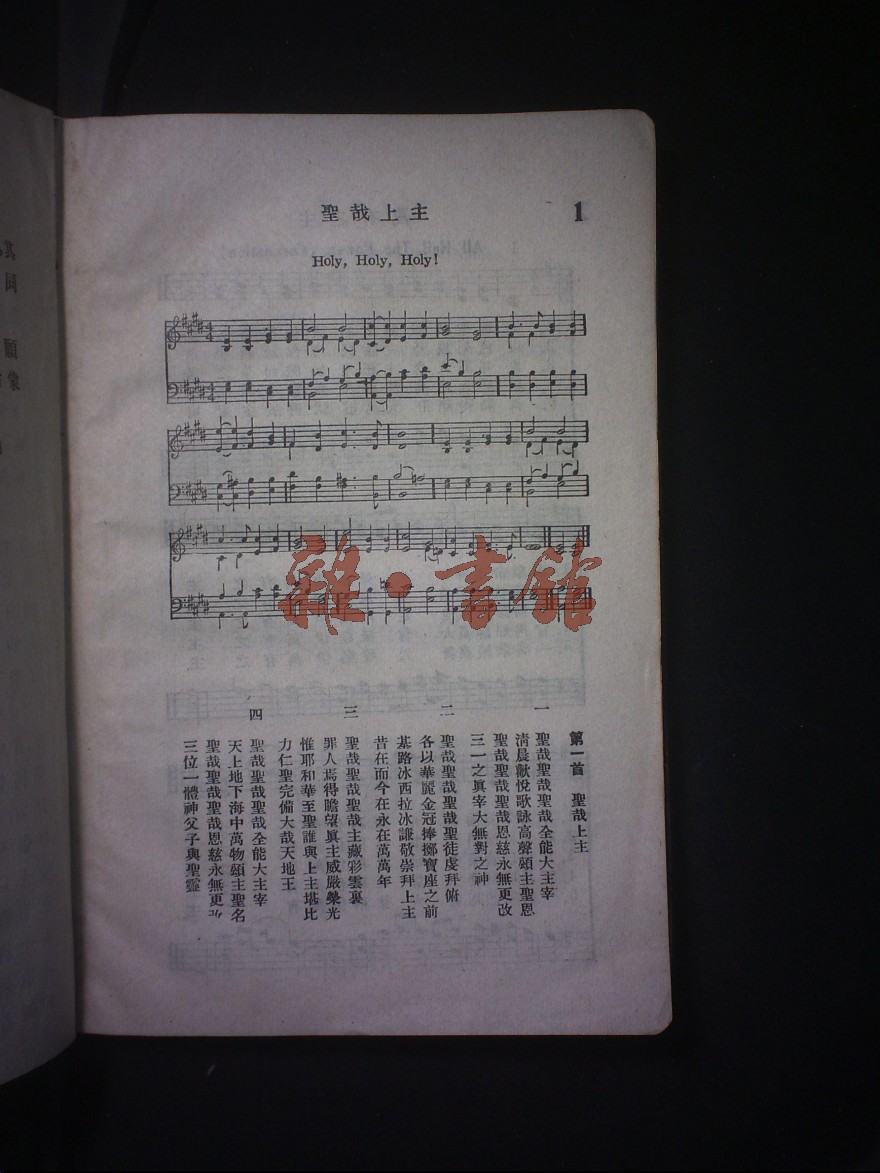 聖哉上主
1
Holy, Holy, Holy!
雜·書館
第一首 聖哉上主
一
聖哉聖哉聖哉全能大主宰
清晨歡悅歌詠高聲頌主聖恩
聖哉聖哉聖哉恩慈永無更改
三一之眞宰大無對之神
二
聖哉聖哉聖哉聖徒虔拜俯
各以華麗金冠捧擲寶座之前
基路冰西拉冰謙敬崇拜上主
昔在而今在永在萬萬年
三
聖哉聖哉聖哉主藏彩雲裏
罪人焉得瞻望眞主威嚴榮光
惟耶和華至聖誰與上主堪比
力仁聖完備大哉天地王
四
聖哉聖哉聖哉全能大主宰
天上地下海中萬物頌主聖名
聖哉聖哉聖哉恩慈永無更改
三位一體神父子與聖靈
其
同
願